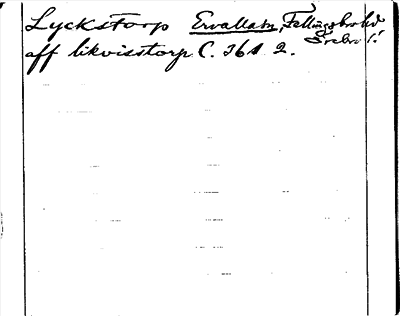 Lyckstorp Ervalla sn, Fellingsbro hd
Örebro l.
aff likvisstorp C. 361 2.